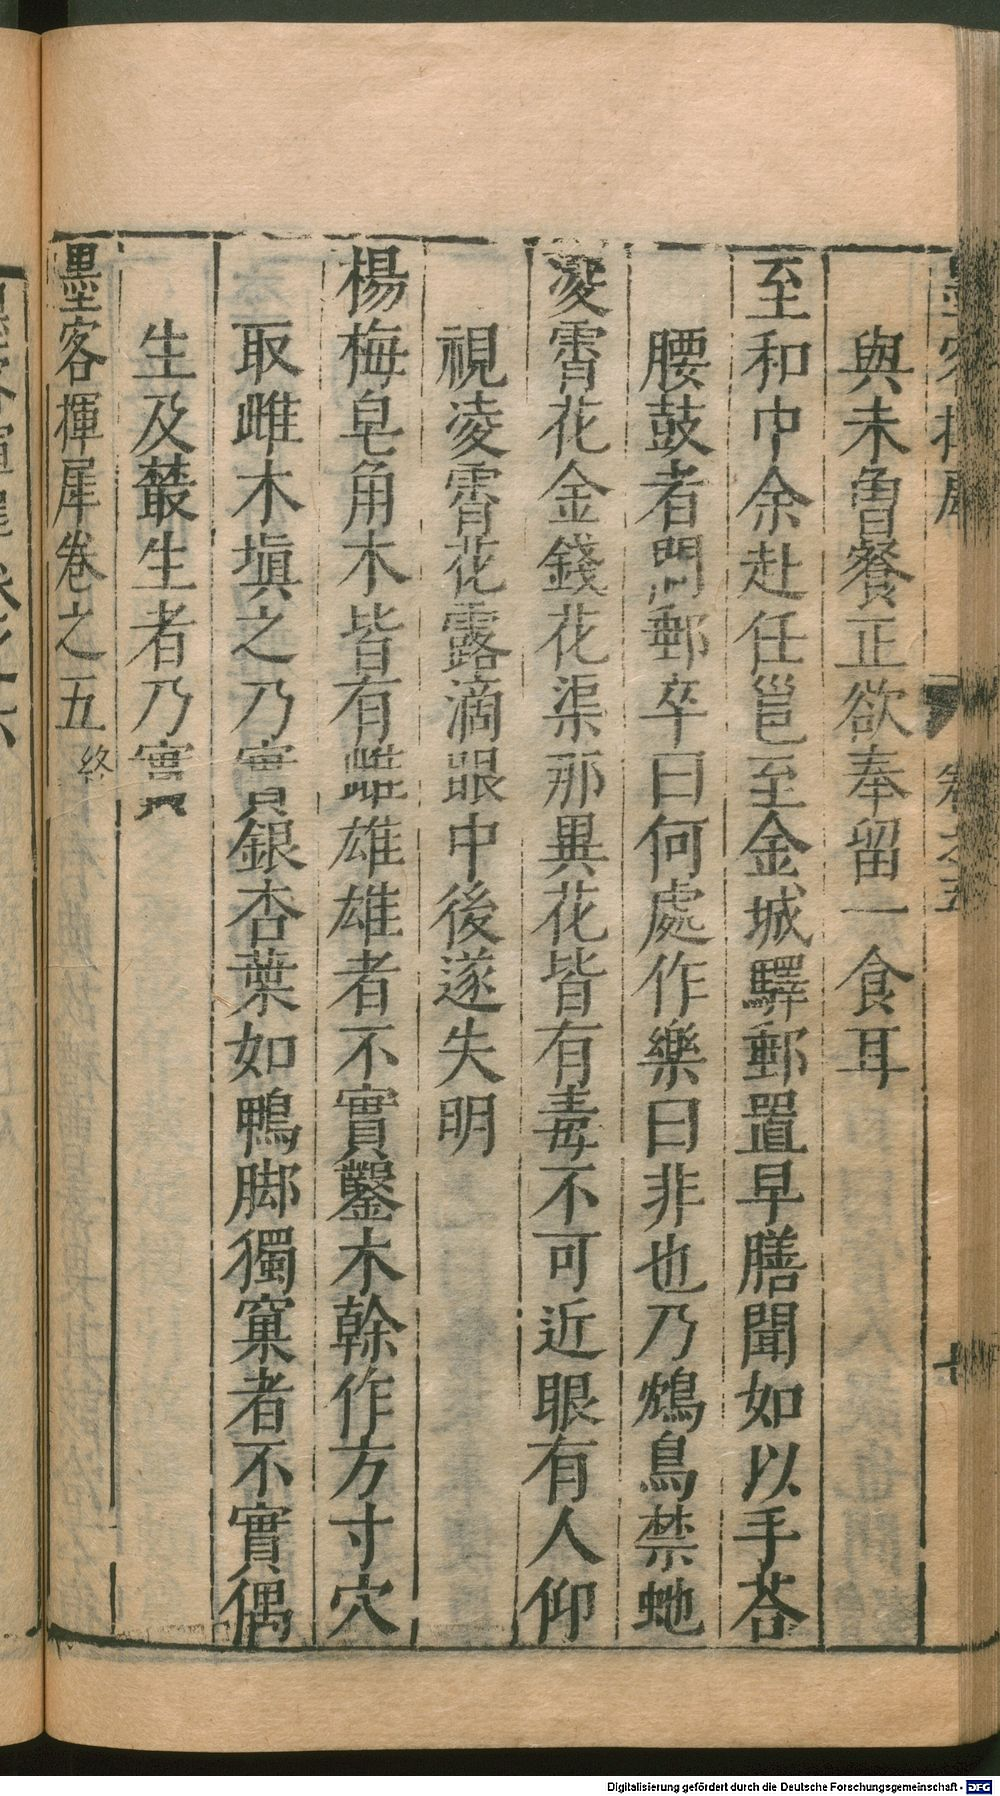 與未曾餐正欲奉留一食耳
至和中余赴任邕至金城驛郵置早膳聞如以手荅
腰鼓者問郵卒曰何處作樂曰非也乃鴆鳥禁虵
凌霄花金錢花渠那異花皆有毒不可近眼有人仰
視凌霄花露滴眼中後遂失明
楊梅皂角木皆有雌雄雄者不實鑿木幹作方寸穴
取雌木塡之乃實銀杏葉如鴨脚獨窠者不實偶
生及叢生者乃實
墨客揮犀卷之五 終
Digitalisierung gefördert durch die Deutsche Forschungsgemeinschaft - DFG